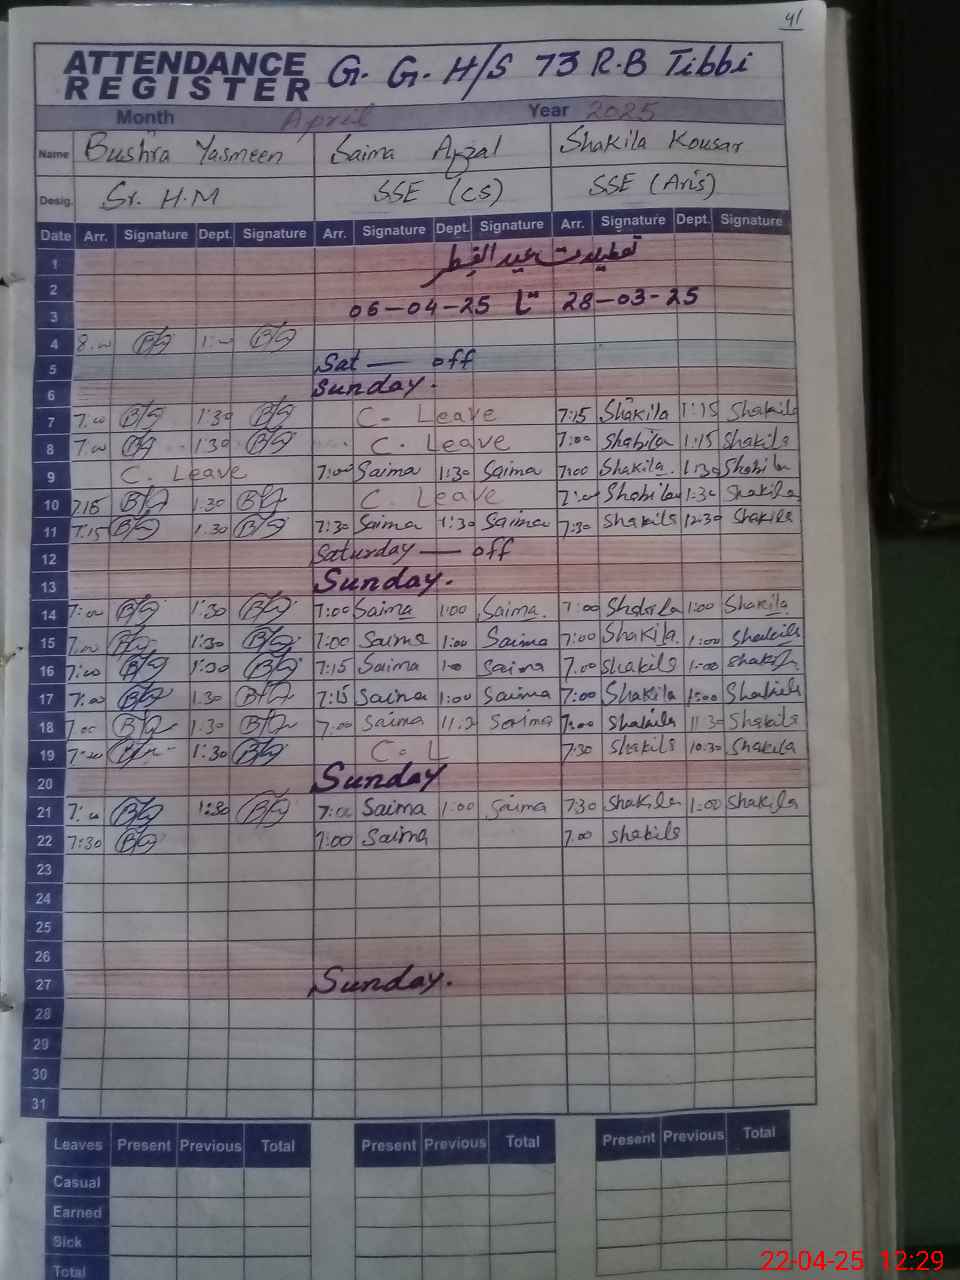 41
ATTENDANCE REGISTER G. G. H/S 73 R.B Tibbi
Month April Year 2025
Name Bushra Yasmeen Saima Afzal Shakila Kousar
Desig. Sr. H.M SSE (CS) SSE (Arts)
Date Arr. Signature Dept. Signature Arr. Signature Dept. Signature Arr. Signature Dept. Signature
1 تعطیلات عید الفطر
2
3 06-04-25 تا 28-03-25
4 8.00 1:00
5 Sat — off
6 Sunday.
7 7:00 1:30 C. Leave 7:15 Shakila 1:15 Shakila
8 7:00 1:30 C. Leave 7:00 Shakila 1:15 Shakila
9 C. Leave 7:00 Saima 1:30 Saima 7:00 Shakila 1:30 Shakila
10 7.15 1.30 C. Leave 7:00 Shakila 1:30 Shakila
11 7.15 1.30 7:30 Saima 1:30 Saima 7:30 Shakila 12:30 Shakila
12 Saturday — off
13 Sunday.
14 7:00 1:30 7:00 Saima 1:00 Saima. 7:00 Shakila 1:00 Shakila
15 7:00 1:30 7:00 Saima 1:00 Saima 7:00 Shakila 1:00 Shakila
16 7:00 1:30 7:15 Saima Saima 7:00 Shakila 1:00 Shakila
17 7:00 1.30 7:15 Saima 1:00 Saima 7:00 Shakila 1:00 Shakila
18 7:00 1.30 7:00 Saima Saima 7:00 Shakila 11:30 Shakila
19 1:30 C. L 7:30 Shakila 10:30 Shakila
20 Sunday
21 7:00 1:30 7:00 Saima 1:00 Saima 7:30 Shakila 1:00 Shakila
22 7:30 7:00 Saima 7.00 Shakila
23
24
25
26
27 Sunday.
28
29
30
31
Leaves Present Previous Total Present Previous Total Present Previous Total
Casual
Earned
Sick
Total
22-04-25 12:29